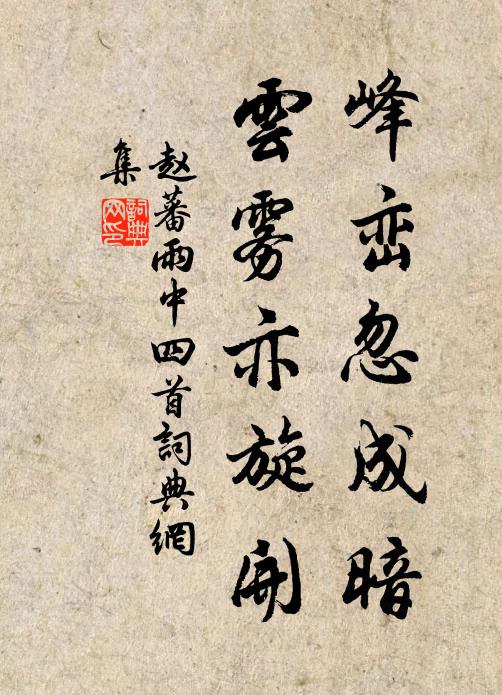 峰峦忽成暗
雲雾亦旋開
赵蕃雨中四首詞典網
集
詞典
网印